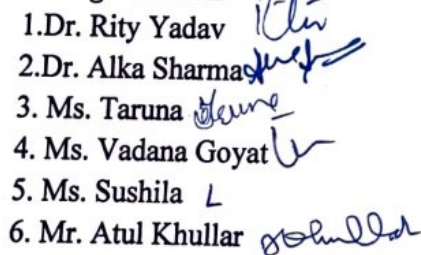 1.Dr. Rity Yadav
2.Dr. Alka Sharma
3. Ms. Taruna
4. Ms. Vadana Goyat
5. Ms. Sushila L
6. Mr. Atul Khullar